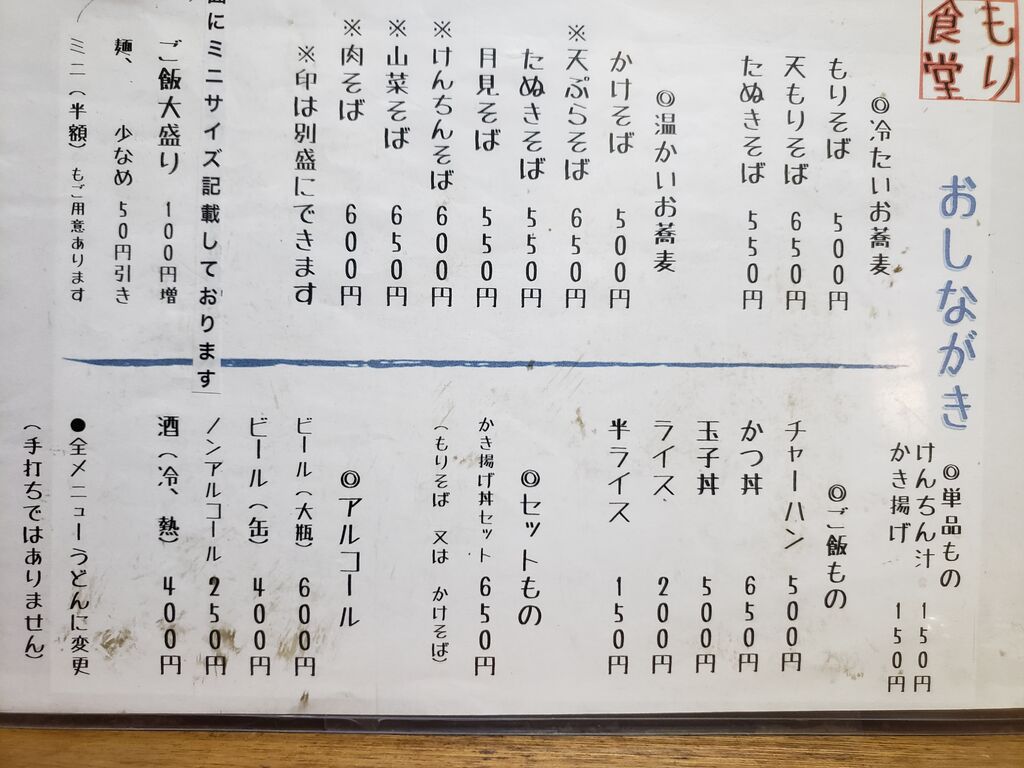 もり
食堂
おしながき
◎冷たいお蕎麦
もりそば 500円
天もりそば 650円
たぬきそば 550円
◎温かいお蕎麦
かけそば 500円
※天ぷらそば 650円
たぬきそば 550円
月見そば 550円
※けんちんそば 600円
※山菜そば 650円
※肉そば 600円
※印は別盛にできます
にミニサイズ記載しております
ご飯大盛り 100円増
麺、少なめ 50円引き
ミニ(半額)もご用意あります
◎単品もの
けんちん汁 150円
かき揚げ 150円
◎ご飯もの
チャーハン 500円
かつ丼 650円
玉子丼 500円
ライス 200円
半ライス 150円
◎セットもの
かき揚げ丼セット 650円
(もりそば 又は かけそば)
◎アルコール
ビール(大瓶) 600円
ビール(缶) 400円
ノンアルコール 250円
酒(冷、熱) 400円
●全メニューうどんに変更
(手打ちではありません)